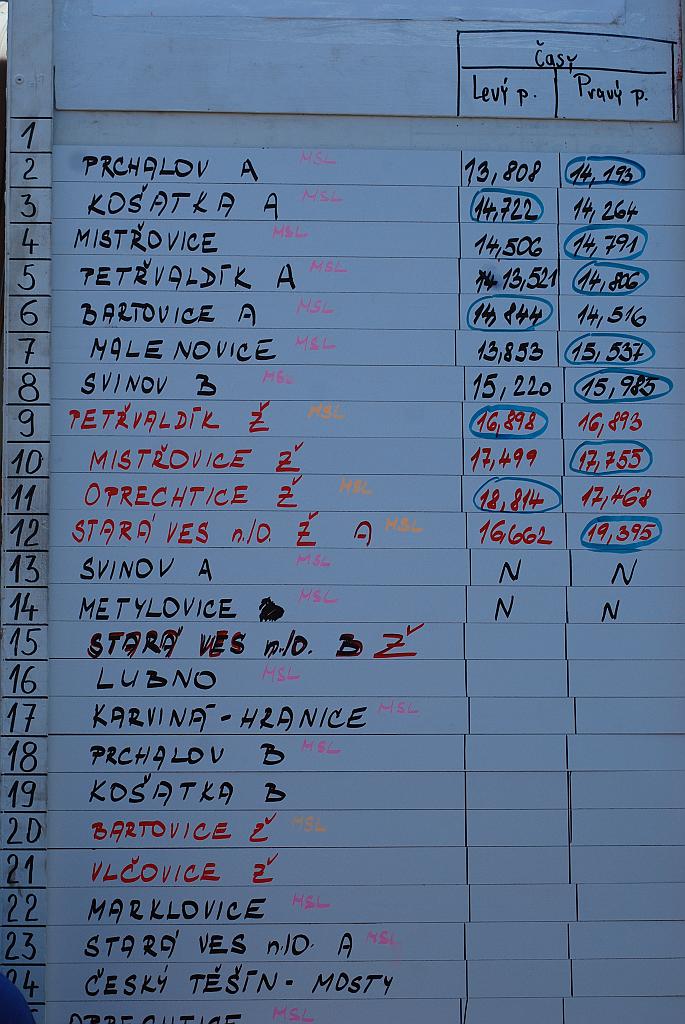 Časy
Levý p. Pravý p.
1
2 PRCHALOV A MSL 13,808 14,193
3 KOŠATKA A MSL 14,722 14,264
4 MISTŘOVICE MSL 14,506 14,791
5 PETŘVALDÍK A MSL 13,521 14,806
6 BARTOVICE A MSL 14,844 14,516
7 MALENOVICE MSL 13,853 15,537
8 SVINOV B MSL 15,220 15,985
9 PETŘVALDÍK Ž MSL 16,898 16,893
10 MISTŘOVICE Ž 17,499 17,755
11 OPRECHTICE Ž MSL 18,814 17,468
12 STARÁ VES n./O. Ž A MSL 16,662 19,395
13 SVINOV A MSL N N
14 METYLOVICE MSL N N
15 STARÁ VES n./O. B Ž
16 LUBNO MSL
17 KARVINÁ - HRANICE MSL
18 PRCHALOV B MSL
19 KOŠATKA B
20 BARTOVICE Ž MSL
21 VLČOVICE Ž
22 MARKLOVICE MSL
23 STARÁ VES n/O. A MSL
24 ČESKÝ TĚŠÍN - MOSTY
OPRECHTICE MSL